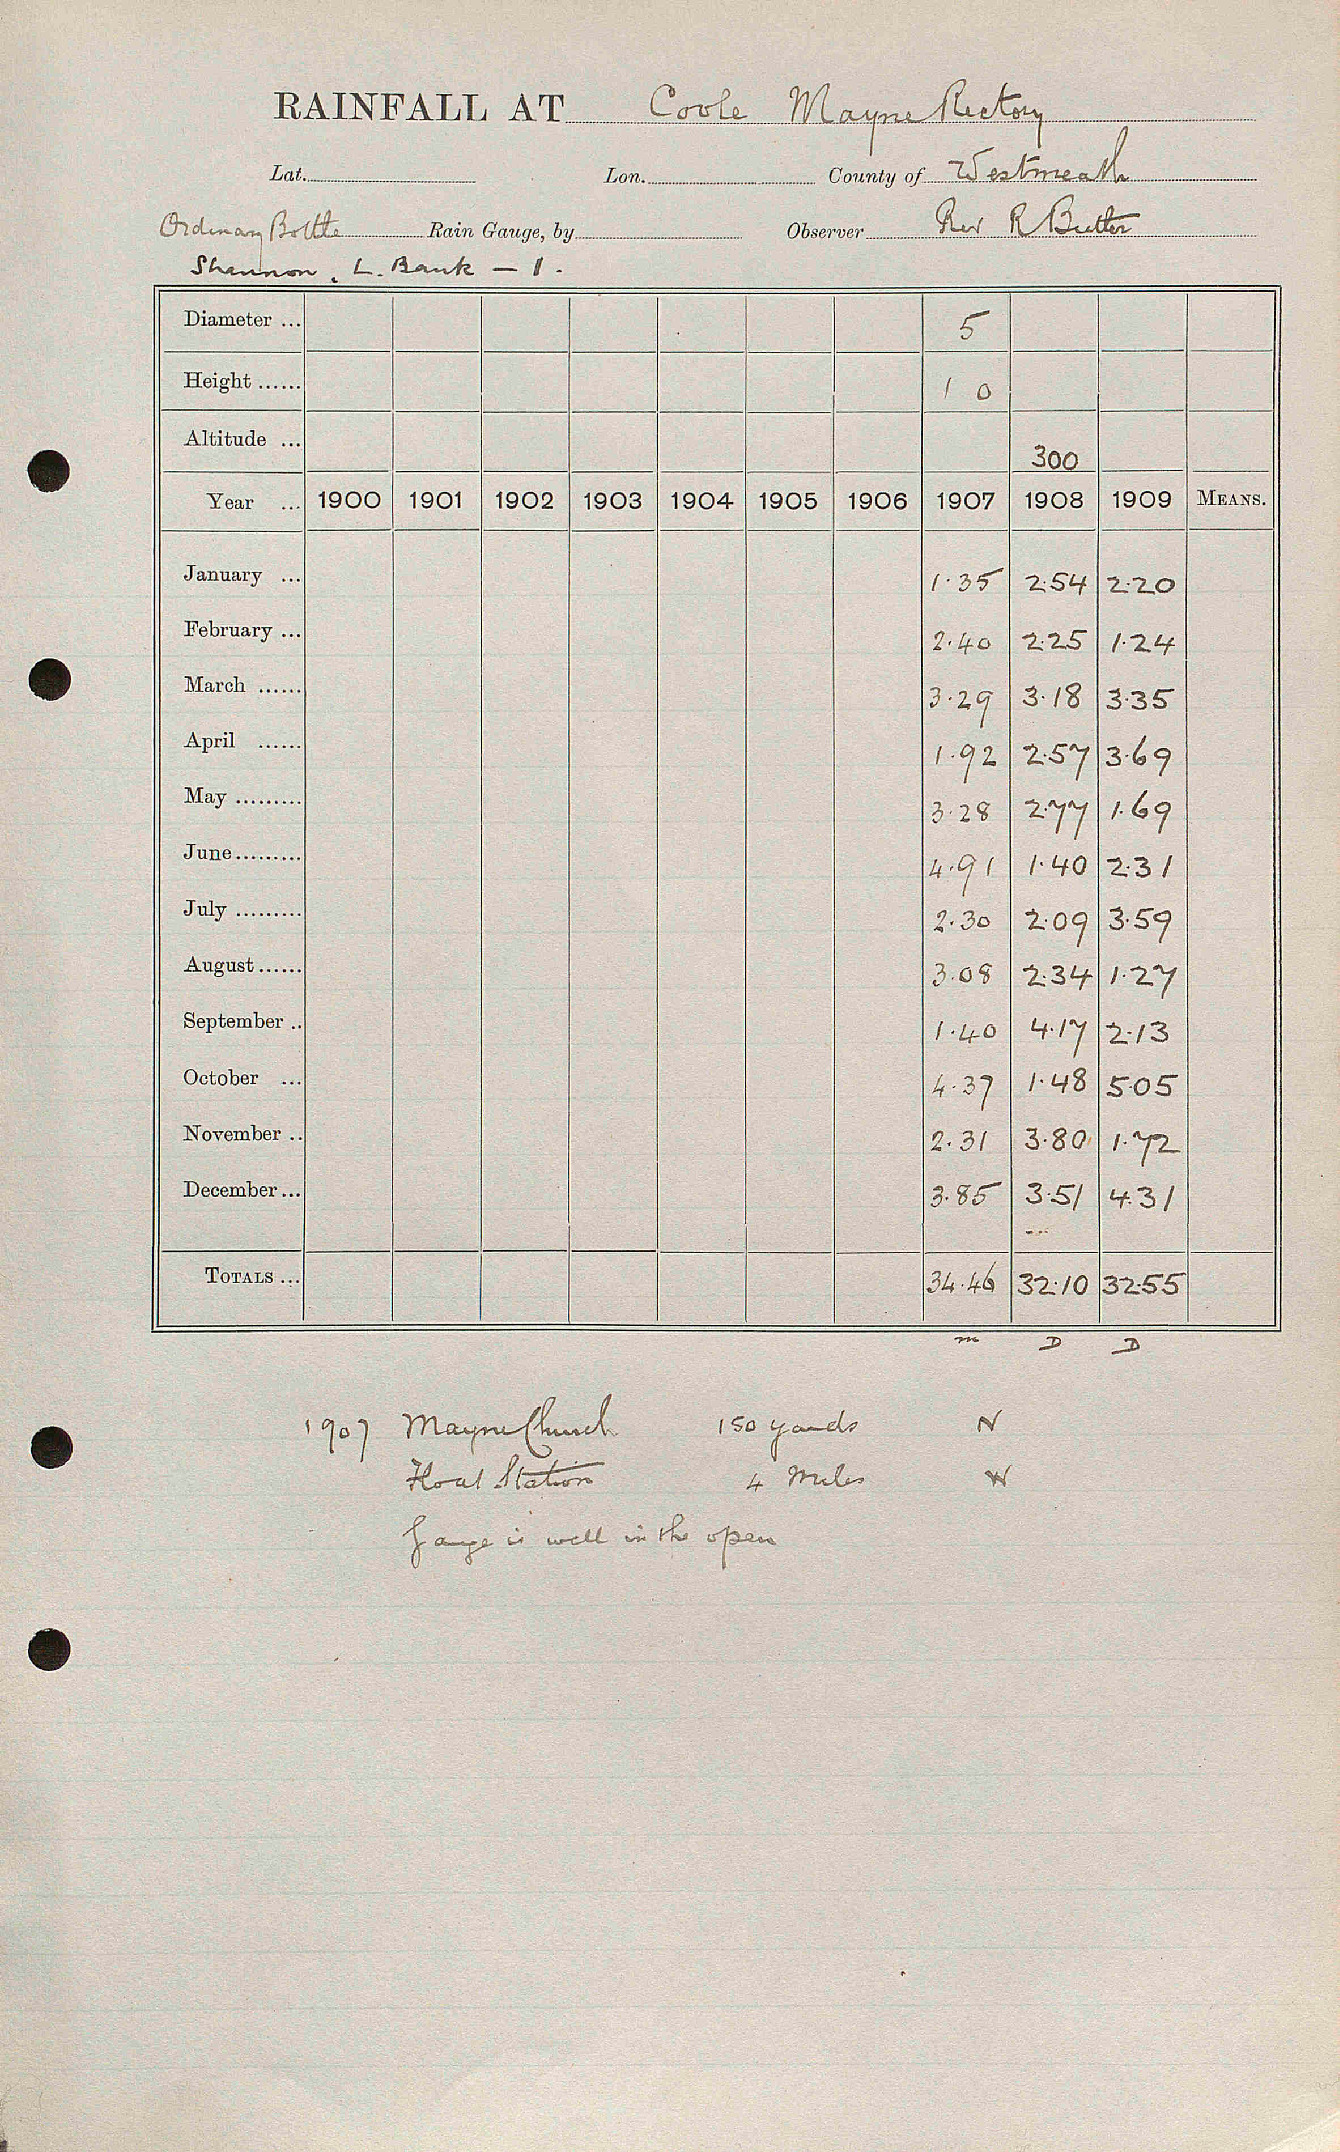 RAINFALL AT Coole Mayne Rectory
Lat. Lon. County of Westmeath
Ordinary Bottle Rain Gauge, by Observer Rev R Butler
Shannon, L. Bank – 1.
Diameter ... 5
Height ...... 1 0
Altitude ... 300
Year ... 1900 1901 1902 1903 1904 1905 1906 1907 1908 1909 MEANS.
January ... 1.35 2.54 2.20
February ... 2.40 2.25 1.24
March ...... 3.29 3.18 3.35
April ...... 1.92 2.57 3.69
May ......... 3.28 2.77 1.69
June ......... 4.91 1.40 2.31
July ......... 2.30 2.09 3.59
August ...... 3.08 2.34 1.27
September .. 1.40 4.17 2.13
October ... 4.37 1.48 5.05
November .. 2.31 3.80 1.72
December ... 3.85 3.51 4.31
TOTALS ... 34.46 32.10 32.55
m D D
1907 Mayne Church 150 yards N
Station 4 Miles
Gauge is well in the open